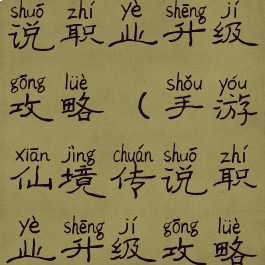 shuō zhí yè shēng jí
说职业升级
gōng lüè shǒu yóu
攻略（手游
xiān jìng chuán shuō zhí
仙境传说职
yè shēng jí gōng lüè
业升级攻略